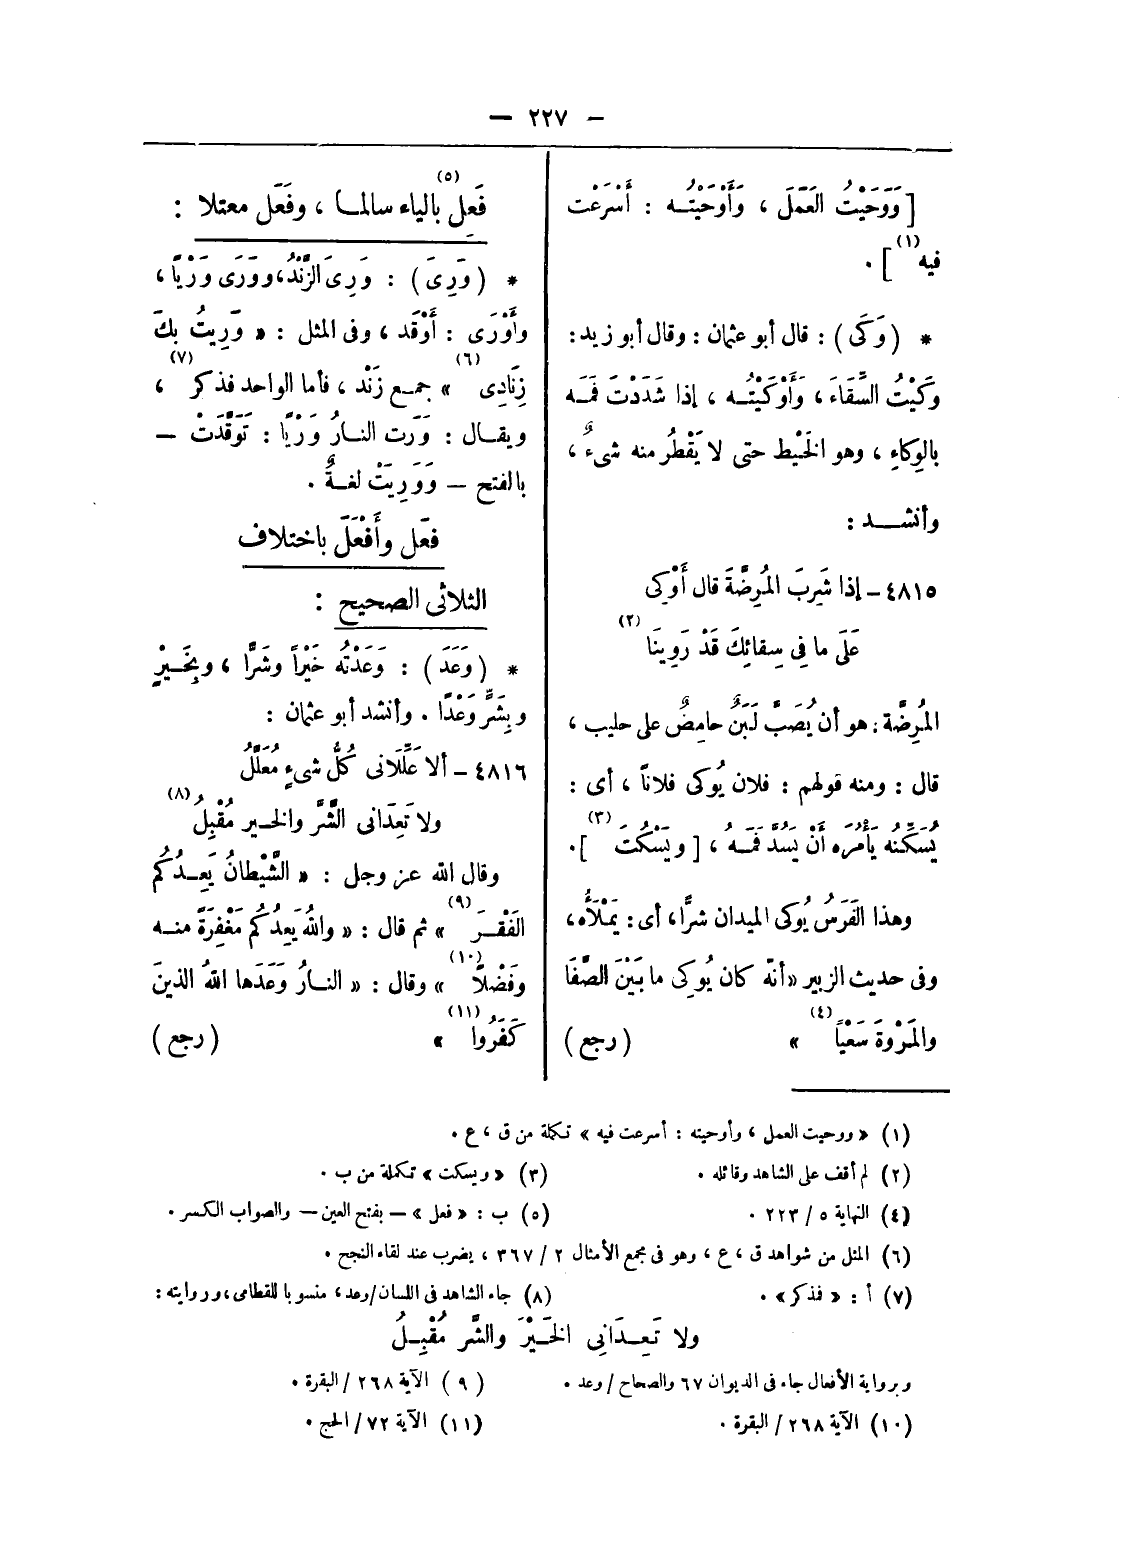 — ٢٢٧ —
[ وَوَحَيْتُ العَمَلَ ، وَأَوْحَيْتُـه : أَسْرَعْت
فيه (١) ] .
* ( وَكَى ) : قال أبو عثمان : وقال أبو زيد :
وَكَيْتُ السِّقَاءَ ، وَأَوْكَيْتُـه ، إذا شَدَدْتَ فَمَـه
بالوِكاءِ ، وهو الخَيْط حتى لا يَقْطُر منه شىءٌ ،
وأنشـــد :
٤٨١٥ – إذا شَرِبَ المُرِضَّةَ قال أَوْكِى
عَلَى ما فِى سِقائِكَ قَدْ رَوِينَا (٢)
المُرِضَّة : هو أن يُصَبَّ لَبَنٌ حامِضٌ على حليب ،
قال : ومنه قولهم : فلان يُوكى فلاناً ، أى :
يُسَكِّتُه يَأْمُرَه أَنْ يَسُدَّ فَمَـهُ ، [ ويَسْكُتَ (٣) ] .
وهذا الفَرَسُ يُوكى الميدان شرًّا ، أى : يَمْلَأُه ،
وفى حديث الزبير « أنّه كان يُوكِى ما بَيْنَ الصَّفَا
والمَرْوةَ سَعْياً (٤) » ( رجع )
فَعِل (٥) بالياء سالمــا ، وفَعَل معتلا :
* ( وَرِىَ ) : وَرِىَ الزَّنْدُ ، وورَى وَرْياً ،
وأَوْرَى : أَوْقَد ، وفى المثل : « وَرِيتُ بكَ
زِنَادِى (٦) » جمـع زَنْد ، فأما الواحد فذكر (٧) ،
ويقـال : وَرَت النـارُ وَرْيًا : تَوَقَّدَتْ –
بالفتح – وَوَرِيَتْ لغـةٌ .
فَعَل وأَفْعَلَ باختلاف
الثلاثى الصحيح :
* ( وَعَدَ ) : وَعَدْتُه خَيْراً وشَرًّا ، وبِخَــيْرٍ
وبِشَرٍّ وَعْدًا . وأنشد أبو عثمان :
٤٨١٦ – ألا عَلِّلَانى كُلُّ شىءٍ مُعَلَّلُ
ولا تَعِدَانى الشَّرَّ والخـير مُقْبِلُ (٨)
وقال الله عز وجل : « الشَّيْطانُ يَعِـدُكُم
الفَقْـرَ (٩) » ثم قال : « واللهُ يَعِدُكُم مَغْفِرَةً منـه
وفَضْلاً (١٠) » وقال : « النـارُ وَعَدَها اللهُ الذينَ
كَفَرُوا (١١) » ( رجع )
(١) « ووحيت العمل ، وأوحيته : أسرعت فيه » تكملة من ق ، ع .
(٢) لم أقف على الشاهد وقائله . (٣) « ويسكت » تكملة من ب .
(٤) النهاية ٥ / ٢٢٣ . (٥) ب : « فعل » – بفتح العين – والصواب الكسر .
(٦) المثل من شواهد ق ، ع ، وهو فى مجمع الأمثال ٢ / ٣٦٧ ، يضرب عند لقاء النجح .
(٧) أ : « فذكر » . (٨) جاء الشاهد فى اللسان/وعد ، منسوبا للقطامى ، وروايته :
ولا تَعِـدَانِى الخَيْرَ والشَّر مُقْبِـلُ
وبرواية الأفعال جاء فى الديوان ٦٧ والصحاح / وعد . ( ٩ ) الآية ٢٦٨ / البقرة .
(١٠) الآية ٢٦٨ / البقرة . (١١) الآية ٧٢ / الحج .